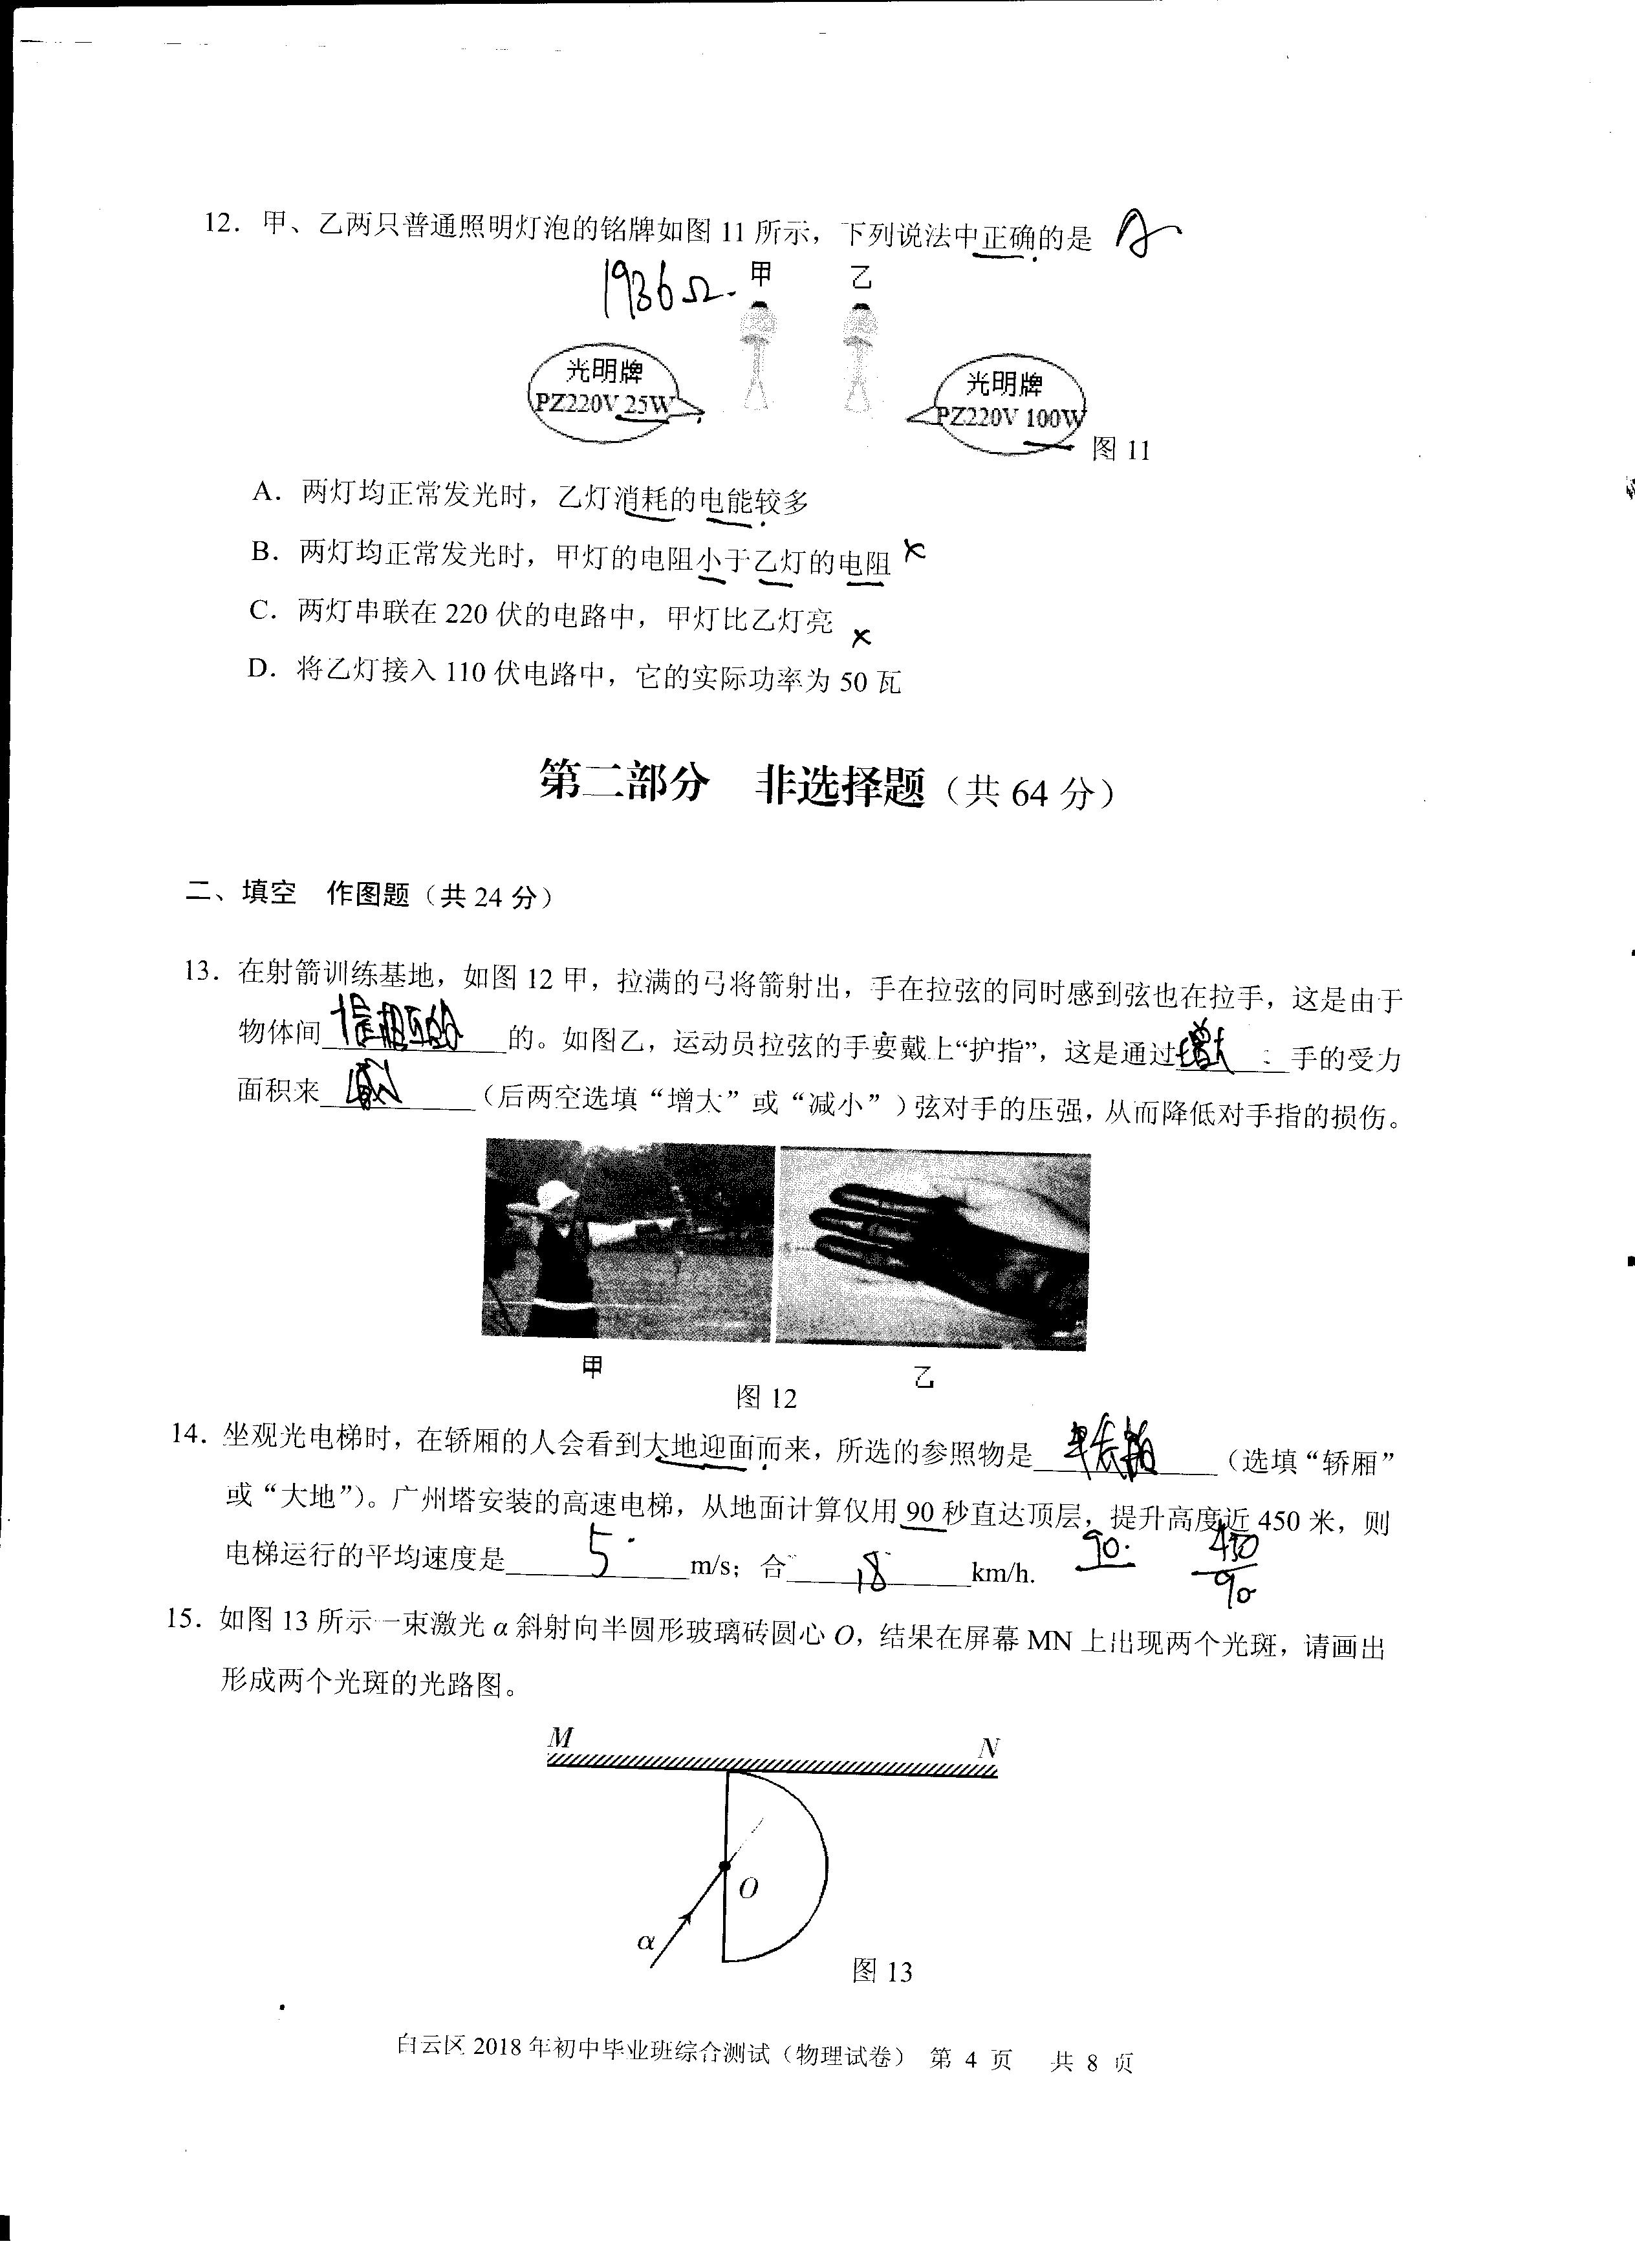 12. 甲、乙两只普通照明灯泡的铭牌如图 11 所示，下列说法中正确的是 A
1936Ω
甲 乙
光明牌
PZ220V 25W
光明牌
PZ220V 100W
图 11
A. 两灯均正常发光时，乙灯消耗的电能较多
B. 两灯均正常发光时，甲灯的电阻小于乙灯的电阻 ×
C. 两灯串联在 220 伏的电路中，甲灯比乙灯亮 ×
D. 将乙灯接入 110 伏电路中，它的实际功率为 50 瓦
第二部分 非选择题（共 64 分）
二、填空 作图题（共 24 分）
13. 在射箭训练基地，如图 12 甲，拉满的弓将箭射出，手在拉弦的同时感到弦也在拉手，这是由于
物体间 的。如图乙，运动员拉弦的手要戴上“护指”，这是通过 手的受力
面积来 （后两空选填“增大”或“减小”）弦对手的压强，从而降低对手指的损伤。
甲
乙
图 12
14. 坐观光电梯时，在轿厢的人会看到大地迎面而来，所选的参照物是 （选填“轿厢”
或“大地”）。广州塔安装的高速电梯，从地面计算仅用 90 秒直达顶层，提升高度近 450 米，则
电梯运行的平均速度是 5 m/s；合 18 km/h. 90. 450
90
15. 如图 13 所示一束激光 α 斜射向半圆形玻璃砖圆心 O，结果在屏幕 MN 上出现两个光斑，请画出
形成两个光斑的光路图。
M
N
O
α
图 13
白云区 2018 年初中毕业班综合测试（物理试卷） 第 4 页 共 8 页